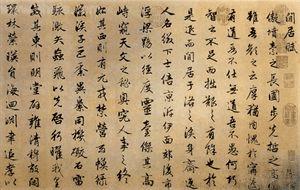 閒居賦
傲墳素之長圃步先哲之高
衢雖吾顏之云厚猶內愧於甯蘧
有道吾不仕無道吾不愚何巧
智之不足而拙艱之有餘也於
是退而閒居于洛之涘身齊逸
人名綴下士倍京泝伊面郊後市
浮梁黝以徑度靈臺傑其高
峙窺天文之祕奧究人事之終
始其西則有元戎禁營玄幕綠
徽谿子巨黍異絭同機礮石雷
駭激矢蝱飛以先啓行曜我皇
威其東則明堂辟雍清穆敞閑
環林縈暎圓海回淵聿追孝以